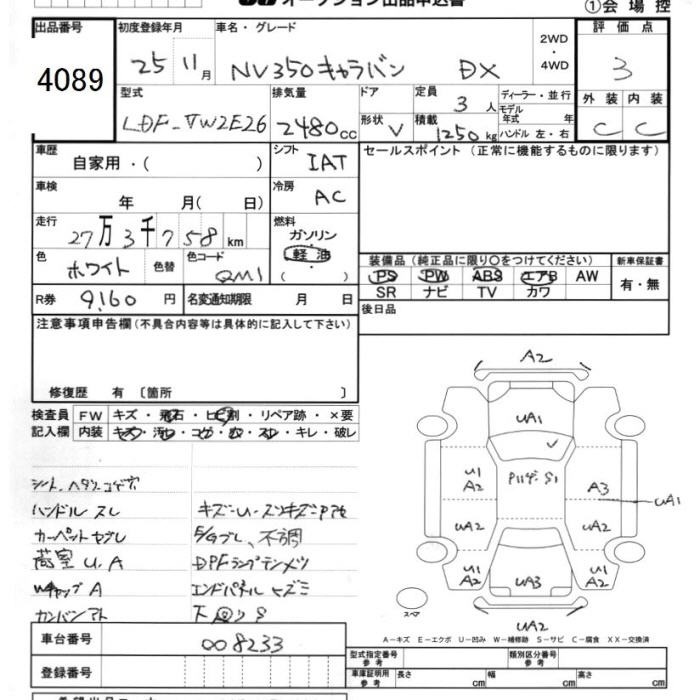 オークション出品申込書
①会場控
出品番号 初度登録年月 車名・グレード 2WD ・ 4WD 評価点
4089 25 11月 NV350キャラバン DX 3
型式 排気量 ドア 定員 3人 ディーラー・並行 外装 内装
モデル年式 年
LDF-VW2E26 2480cc 形状 V 積載 1250kg ハンドル 左・右 C C
車歴 自家用・( ) シフト IAT セールスポイント (正常に機能するものに限ります)
車検 年 月( 日) 冷房 AC
走行 27万3千758km 燃料 ガソリン 軽油 ( )
色 ホワイト 色替 色コード QM1 装備品(純正品に限り〇をつけてください) 新車保証書
PS PW ABS エアB AW 有・無
SR ナビ TV カワ
R券 9,160円 名変通知期限 月 日 後日品
注意事項申告欄(不具合内容等は具体的に記入して下さい)
修復歴 有 〔箇所 〕
検査員 FW キズ・飛石・ヒビ割・リペア跡・×要
記入欄 内装 キズ・汚レ・コゲ・穴・スレ・キレ・破レ
シート、ヘタリコゲ穴
ハンドルスレ
カーペットヤブレ
荷室U.A 不調
WキャップA DPFランプテンメツ
カンバンアト エンドパネル
車台番号 008233
登録番号
A2
UA1
U1 A2
P114ヂ.S1
A3
UA1
UA2
UA2
U1 A2
UA3
U1 A2
UA2
スペア
A−キズ E−エクボ U−凹み W−補修跡 S−サビ C−腐食 XX−交換済
型式指定番号 参考 類別区分番号 参考
車庫証明用 参考 長さ cm 幅 cm 高さ cm